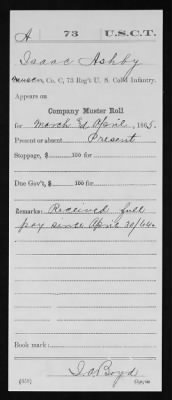 A 73 U.S.C.T.
Isaac Ashby
Co. C, 73 Reg't U. S. Col'd Infantry.
Appears on
Company Muster Roll
for March & April, 1865.
Present or absent Present
Stoppage, $ 100 for
Due Gov't, $ 100 for
Remarks: Received full
pay since April 30/64.
Book mark:
I. A. Boyd
(358) Copyist.